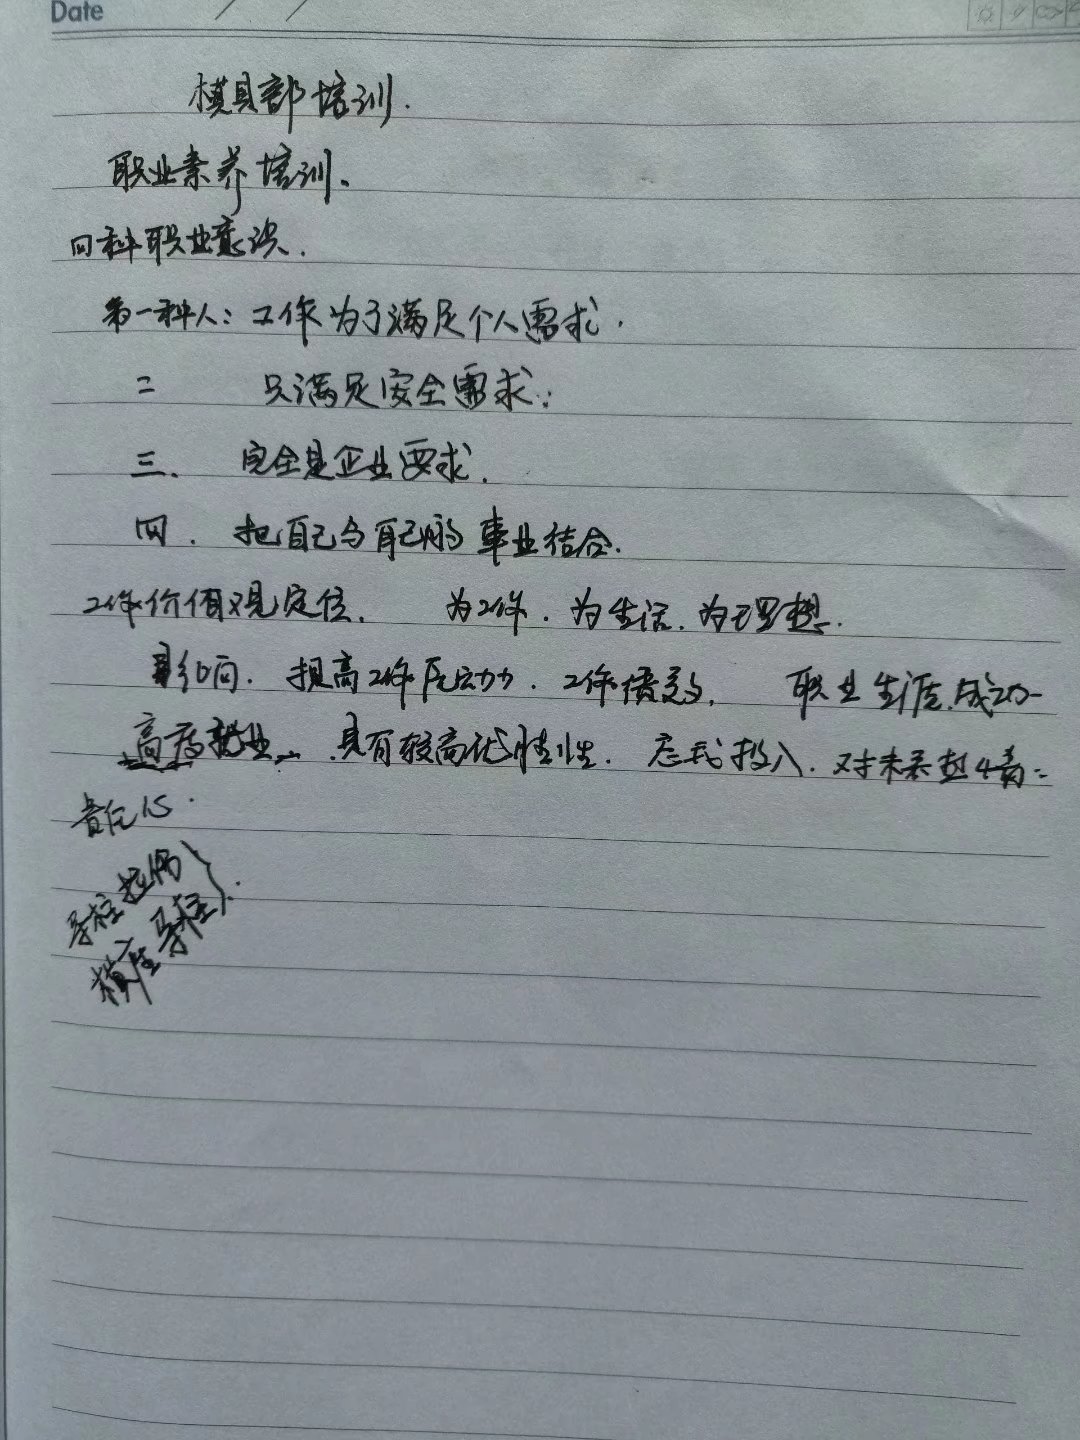 Date
模具部培训.
职业素养培训、
四种职业意识.
第一种人：工作为了满足个人需求.
二 只满足安全需求；
三、 完全是企业要求.
四. 把自己与自己的事业结合.
工作价值观定位. 为工作. 为生活. 为理想.
影响. 提高工作 工作 职业生涯.成功
高度敬业 具有较高 忘我投入. 对未来
责任心.
导柱
模座导柱